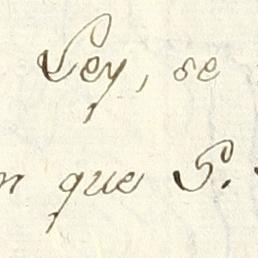 Ley, se
que S.